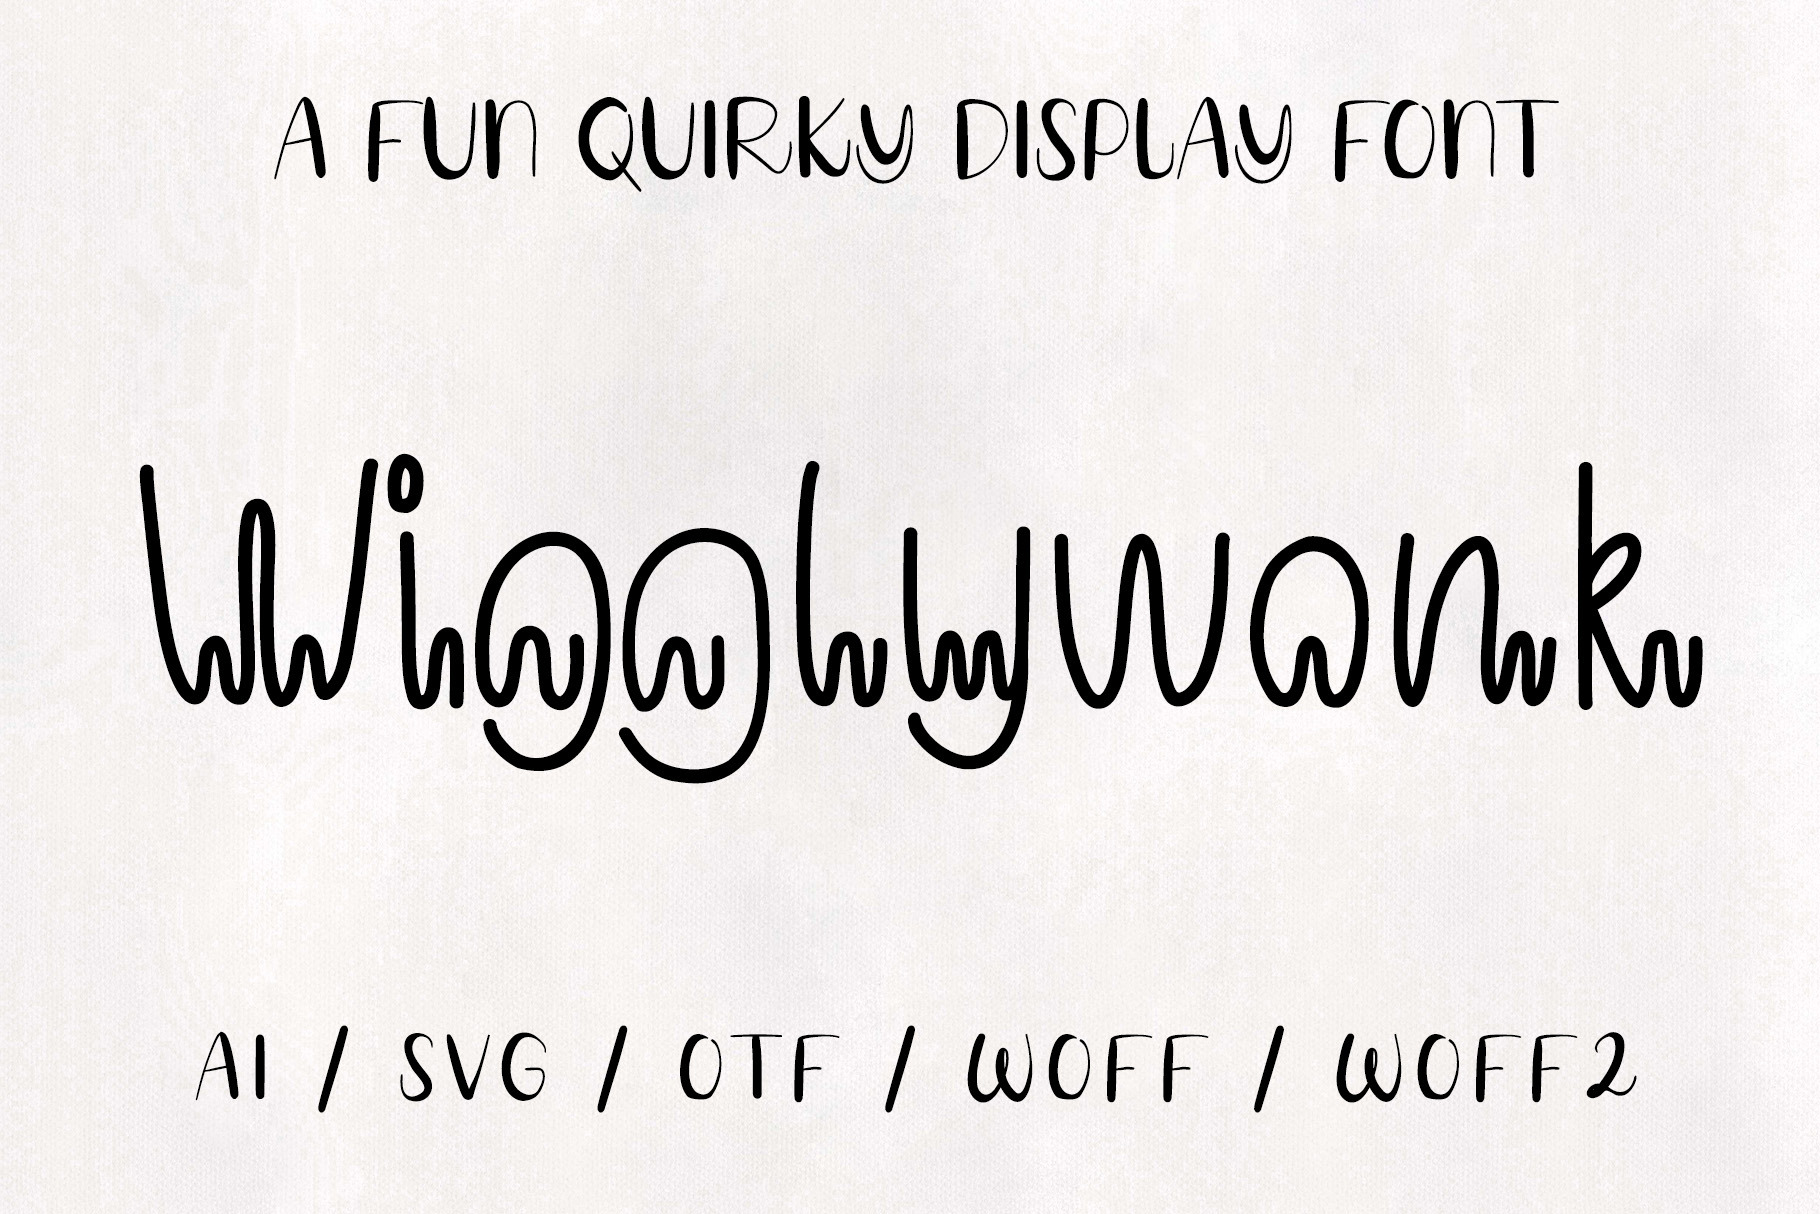 A FUN QUIRKY DISPLAY FONT
Wigglywonk
AI / SVG / OTF / WOFF / WOFF2